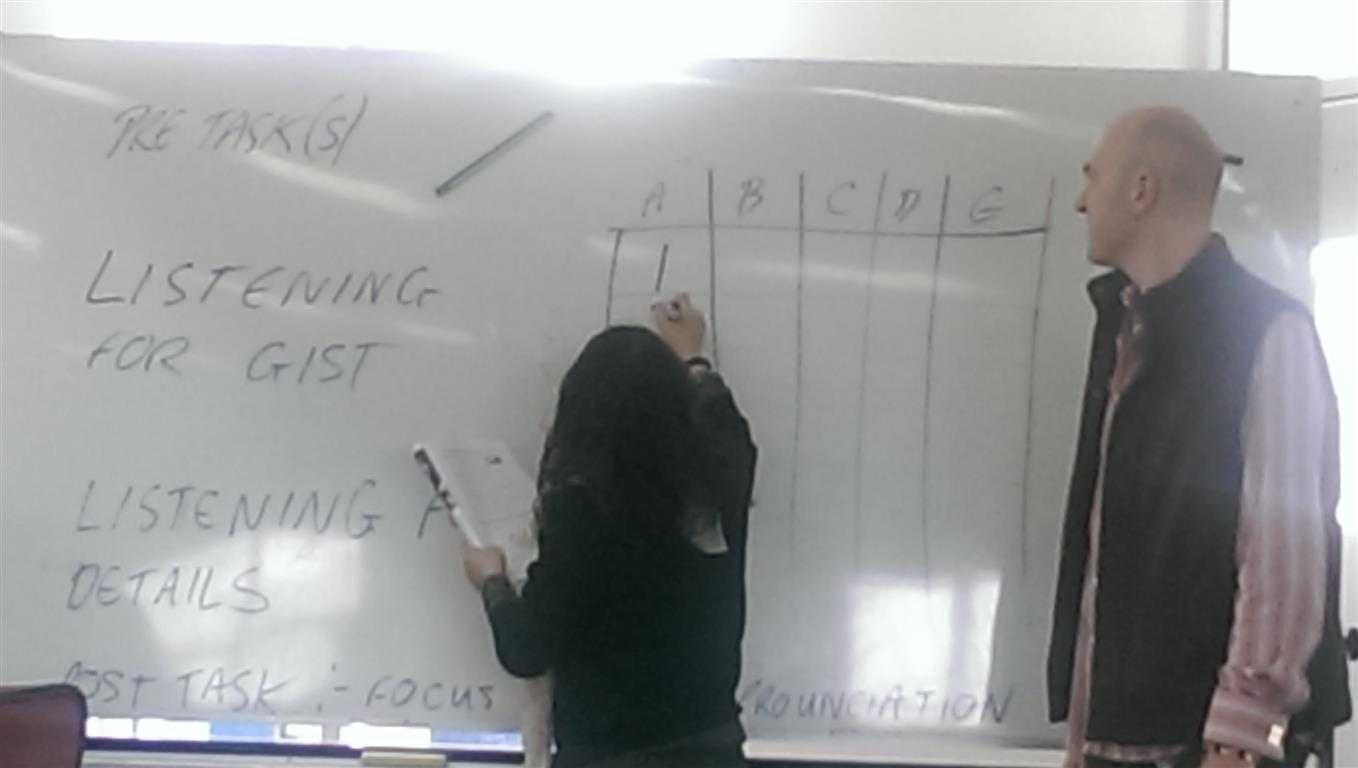 PRE TASK(S)
A B C D E
1
LISTENING
FOR GIST
LISTENING
DETAILS
POST TASK :- FOCUS PROUNCIATION